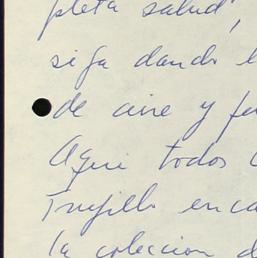 pleta salud,
siga dando l
de aire y fu
Aqui todos
Trujillo enca
la coleccion d